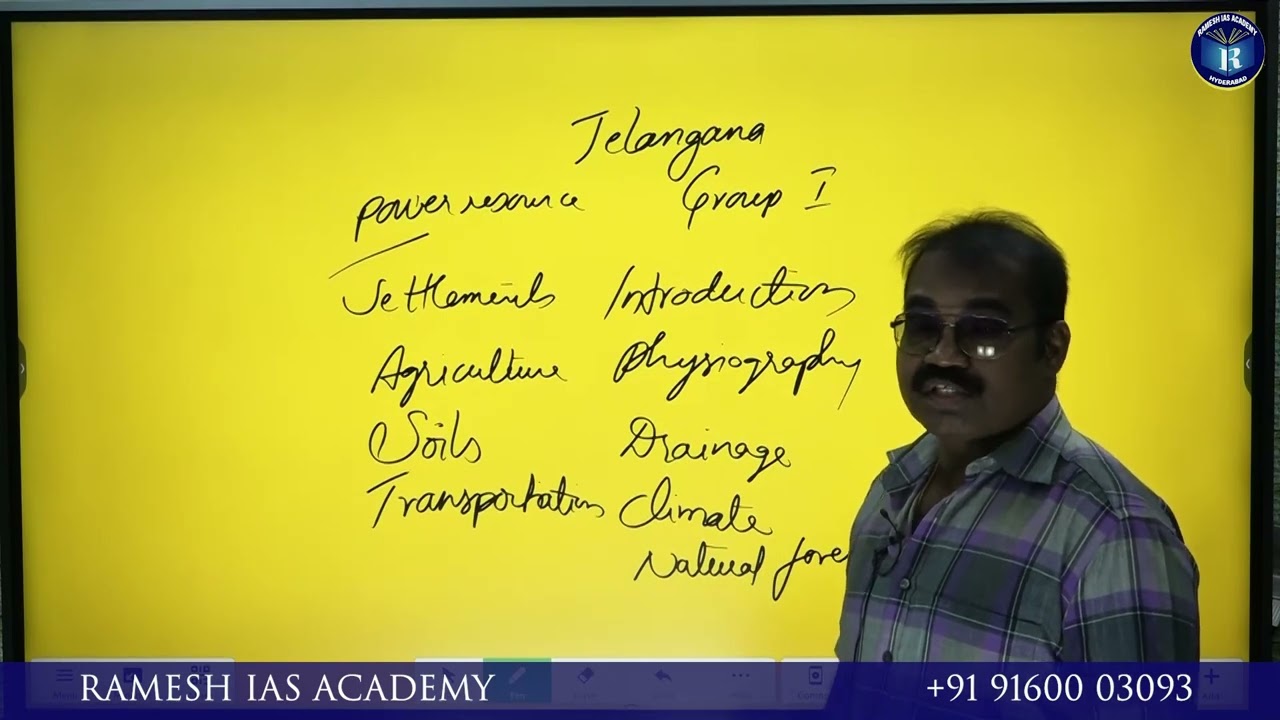 RAMESH IAS ACADEMY
R
HYDERABAD
Telangana
Group I
power resource
Settlements
Introduction
Agriculture
Physiography
Soils
Drainage
Transportation
Climate
Natural fore
RAMESH IAS ACADEMY
+91 91600 03093